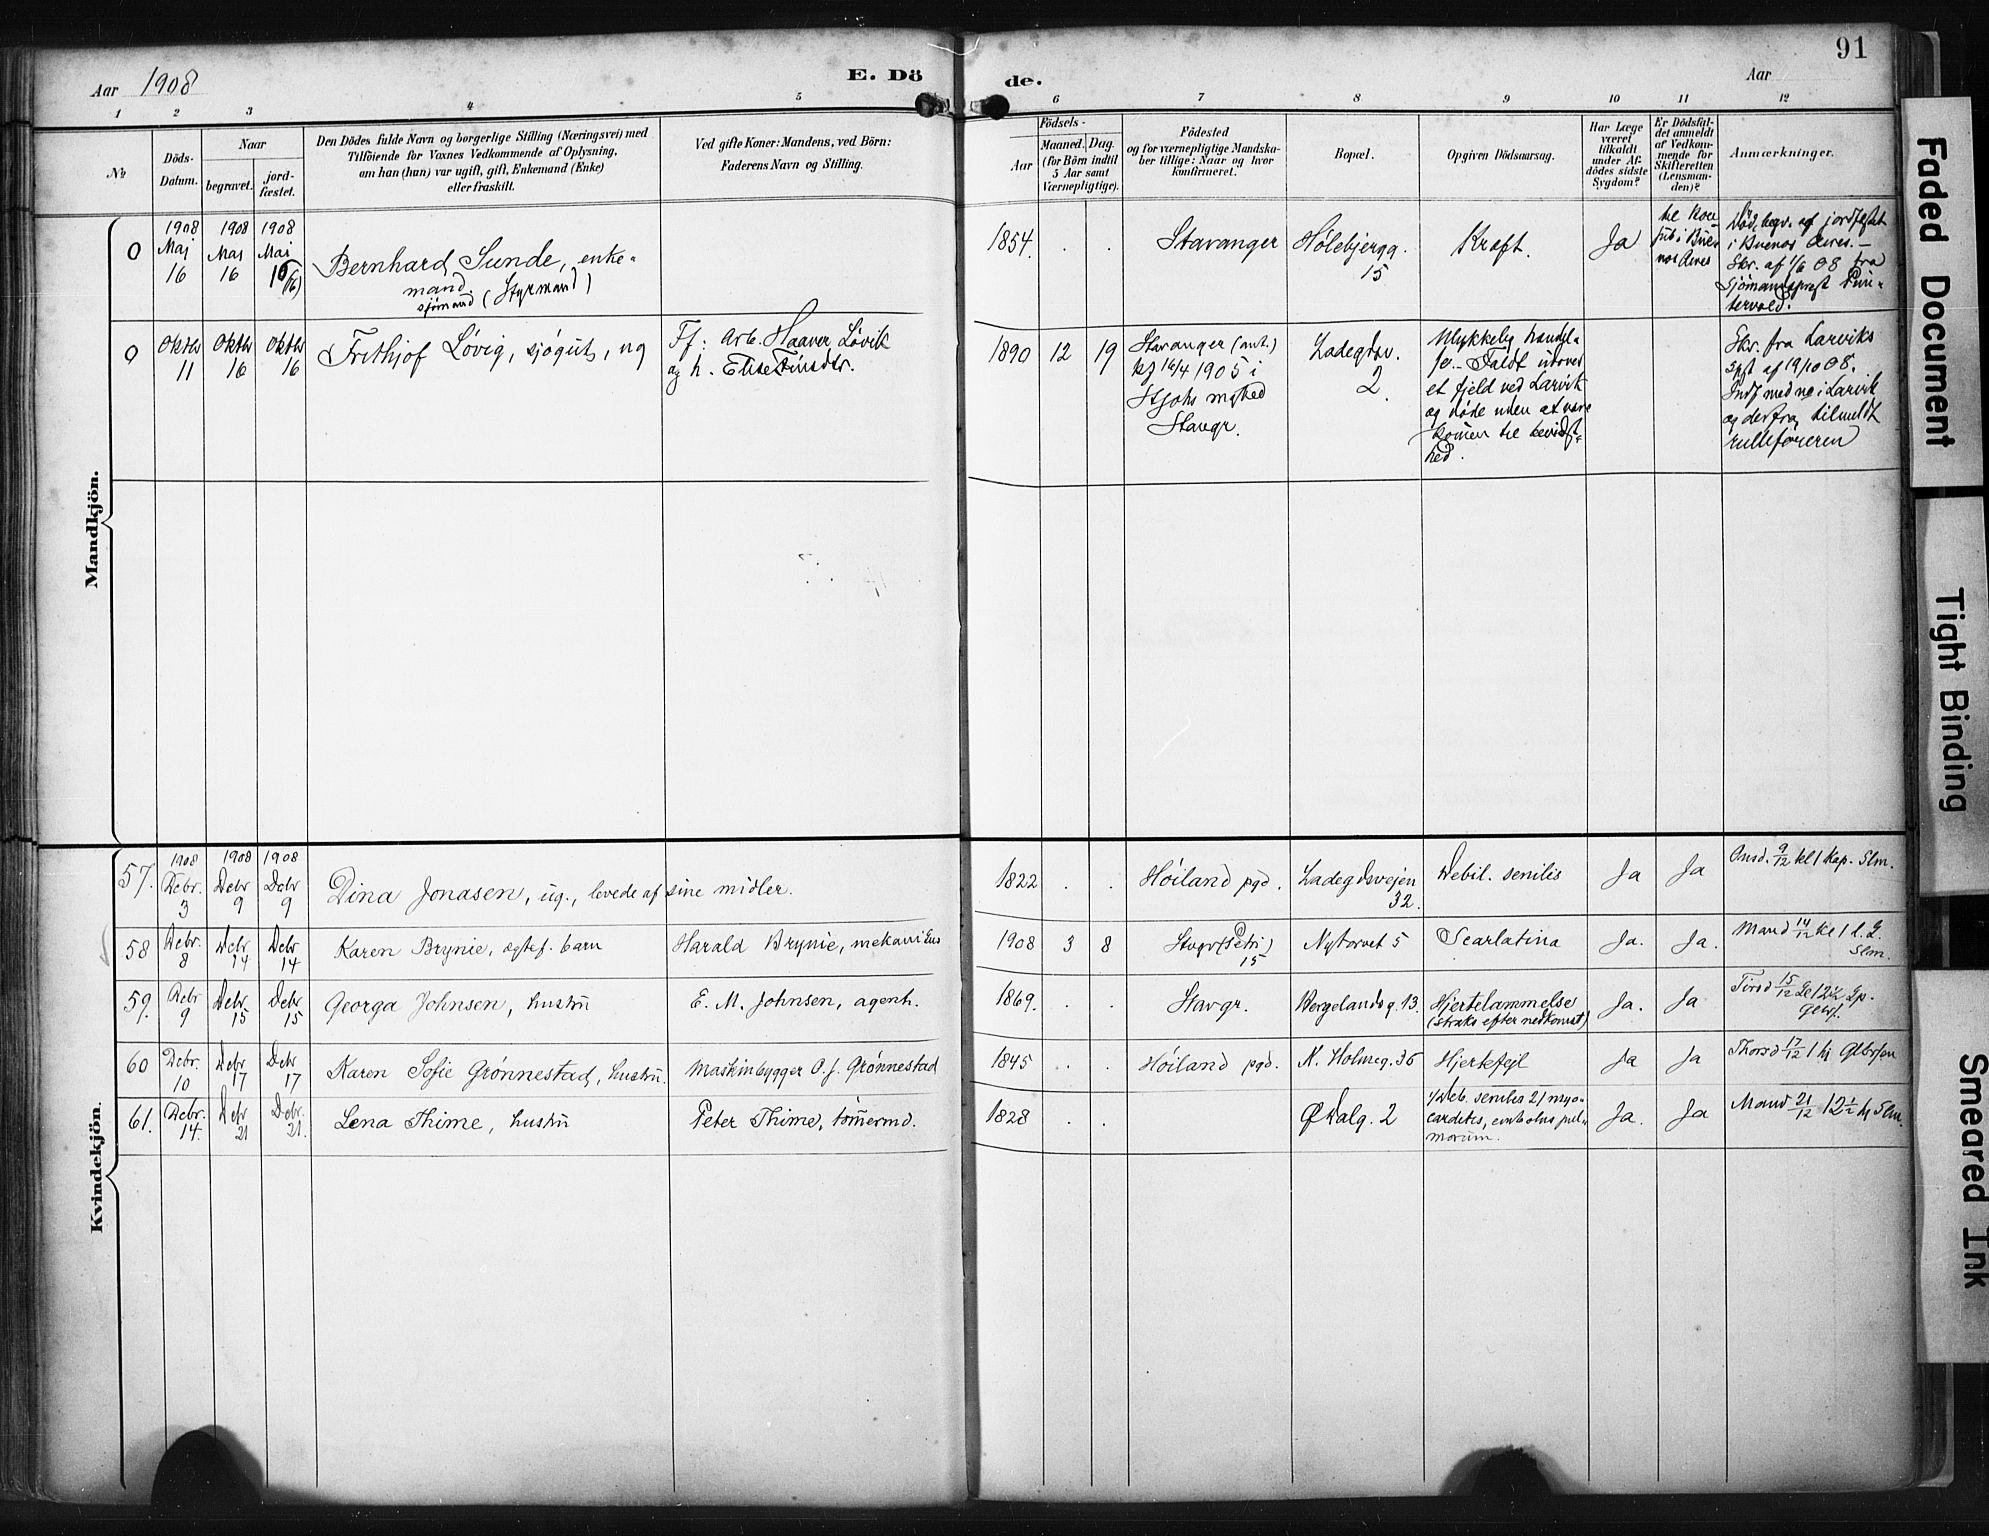 91
Aar 1908
E. Dö
de.
Aar
1 2 3 4 5 6 7 8 9 10 11 12
№
Döds-
Datum.
Naar
begravet.
jord-
fæstet.
Den Dödes fulde Navn og borgerlige Stilling (Næringsvei) med
Tilföiende for Voxnes Vedkommende af Oplysning,
om han (hun) var ugift, gift, Enkemand (Enke)
eller fraskilt.
Ved gifte Koner: Mandens, ved Börn:
Faderens Navn og Stilling.
Födsels-
Aar
Maaned.
Dag.
(for Börn indtil
5 Aar samt
Værnepligtige).
Födested
og for værnepligtige Mandska-
ber tillige: Naar og hvor
konfirmeret.
Bopæl.
Opgiven Dödsaarsag.
Har Læge
været
tilkaldt
under Af-
dödes sidste
Sygdom?
Er Dödsfal-
det anmeldt
af Vedkom-
mende for
Skifteretten
(Lensman-
den)?
Anmærkninger.
Mandkjön.
0
1908
Maj
16
1908
Maj
16
1908
Mai
16 (16)
Bernhard Sunde, enke-
mand.
sjømand (Styrmand)
1854. . .
Stavanger
Holebjergg.
15
Kraft.
Ja
til Kon-
sul i Bue-
nos Aires
Død, begr. og jordfæstet
i Buenos Aires. -
Skr. af 1/6 08 fra
Sjømandspræst
0
Oktbr
11
Oktbr
16
Oktbr
16
Frithjof Løvig, sjøgut, ug
Ff: Arb. Haaver Løvik
og h. Elise Finsdtr.
1890 12 19
Stavanger (ant.)
kf 16/4 1905 i
St Johs mghed
Stavgr.
Ladegdsv.
2
Ulykkelig hændel-
se. - Faldt utover
et fjeld ved Larvik
og døde uden at være
komen til bevidst-
hed.
Skr. fra Larviks
spst af 19/10 08.
Indf med no i Larvik
og derfra tilmeldt
rulleføreren
Kvindekjön.
57.
1908
Debr.
3
1908
Debr
9
1908
Debr
9
Dina Jonasen, ug., levede af sine midler.
1822 . .
Høiland pgd.
Ladegdsvejen
32.
Debil. senilis
Ja
Ja
Onsd. 9/12 kl 1 Kap. Slm.
58
Debr.
8
Debr
14
Debr
14
Karen Brynie, ægtef. barn
Harald Brynie, mekanikus
1908 3 8
Stvgr (Petri)
15
Nytorvet 5
Scarlatina
Ja.
Ja.
Mand 14/12 kl 1 l. G.
Slm.
59.
Debr
9
Debr
15
Debr
15
Georga Johnsen, hustru
E. M. Johnsen, agent.
1869. . .
Stavgr.
Bergelandsg. 13.
Hjertelammelse
(straks efter nedkomst)
Ja.
Ja
Tirsd 15/12
60
Debr.
10
Debr
17
Debr
17
Karen Sofie Grønnestad, hustru.
Maskinbygger O. J. Grønnestad
1845 . .
Høiland pgd.
N. Holmeg. 36
Hjertefejl
Ja
Ja
Thorsd 17/12 1 kj
61.
Debr.
14.
Debr
21
Debr.
21.
Lena Thime, hustru
Peter Thime, tømermd.
1828 . .
Ø Dalg. 2
1/Deb. senilis 2/ myo-
carditis, embolus pul-
monum.
Ja.
Ja
Mand 21/12 12½ kj Slm.
Faded Document
Tight Binding
Smeared Ink